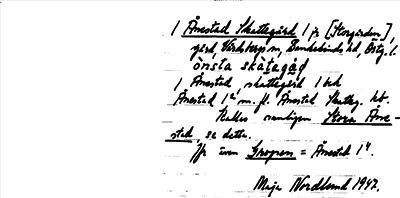 / Ånestad Skattegård / jr [Storgården],
gård, Vårdsbergs sn, Bankekinds hd, Östg. l.
ö̀nsta skàtegàd
/ Ånestad, skattegård 1 och
Ånestad 1² m. fl. Ånestad Skatteg. kt.
Kallas vanligen Stora Åne-
stad, se detta.
Jfr även Gropen = Ånestad 1⁴.
Maja Nordlund 1947.